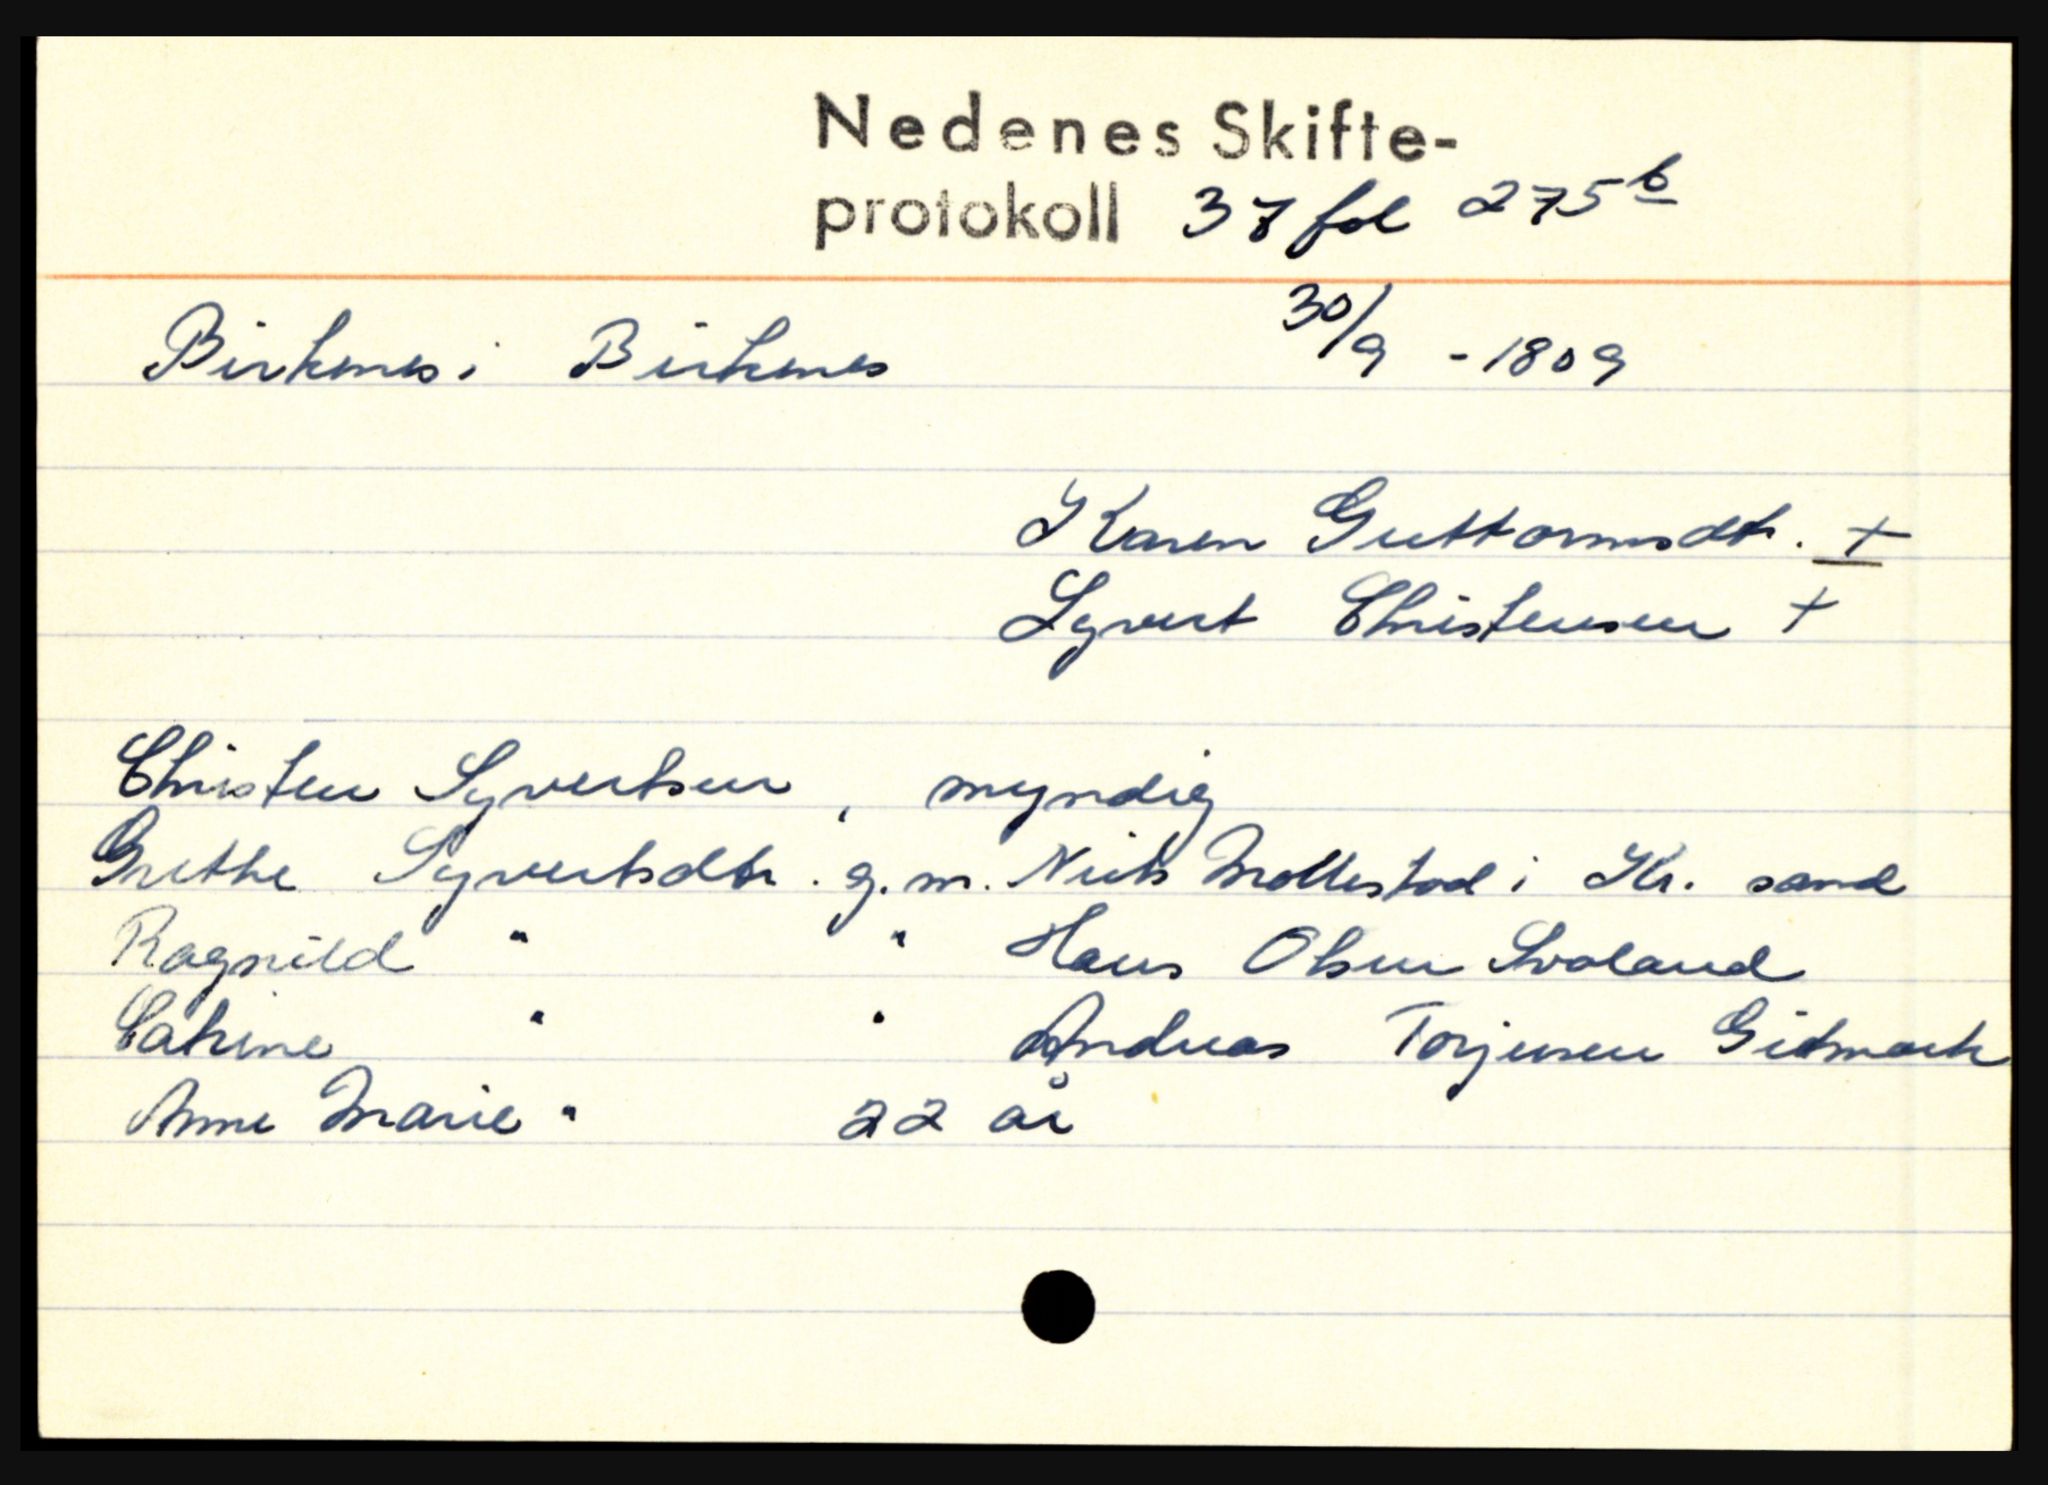 Nedenes Skifte-
protokoll 37 fol 275 b
Birkenes i Birkenes 30/9 - 1809
Karen Guttormsdtr. +
Syvert Christensen +
Christen Syvertsen, myndig
Grethe Syvertsdtr. g.m. Niels Mollestad i Kr. sand
Ragnild " " Hans Olsen Svaland
Cahrine " " Andreas Torjusen Gidmark
Anne Marie " 22 år